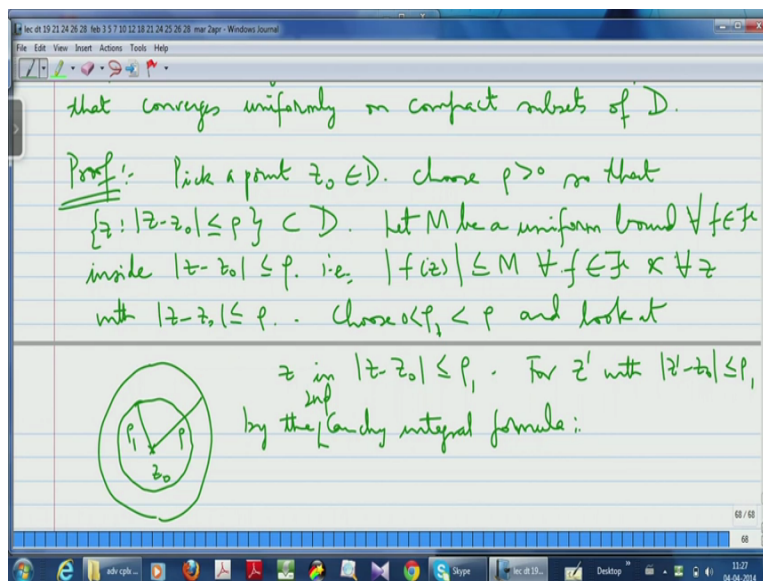 lec dt 19 21 24 26 28 feb 3 5 7 10 12 18 21 24 25 26 28 mar 2apr - Windows Journal
File Edit View Insert Actions Tools Help
that converges uniformly on compact subsets of D.
Proof:- Pick a point z₀ ∈ D. Choose ρ>0 so that
{z : |z-z₀| ≤ ρ} ⊂ D. Let M be a uniform bound ∀ f ∈ ℱ
inside |z-z₀| ≤ ρ. i.e., |f(z)| ≤ M ∀ f ∈ ℱ & ∀ z
with |z-z₀| ≤ ρ. Choose 0<ρ₁ < ρ and look at
z in |z-z₀| ≤ ρ₁. For z' with |z'-z₀| ≤ ρ₁
2nd
by the Cauchy integral formula:
ρ₁ ρ
z₀
68 / 68
68
adv cplx ...
Skype
lec dt 19...
Desktop
11:27
04-04-2014